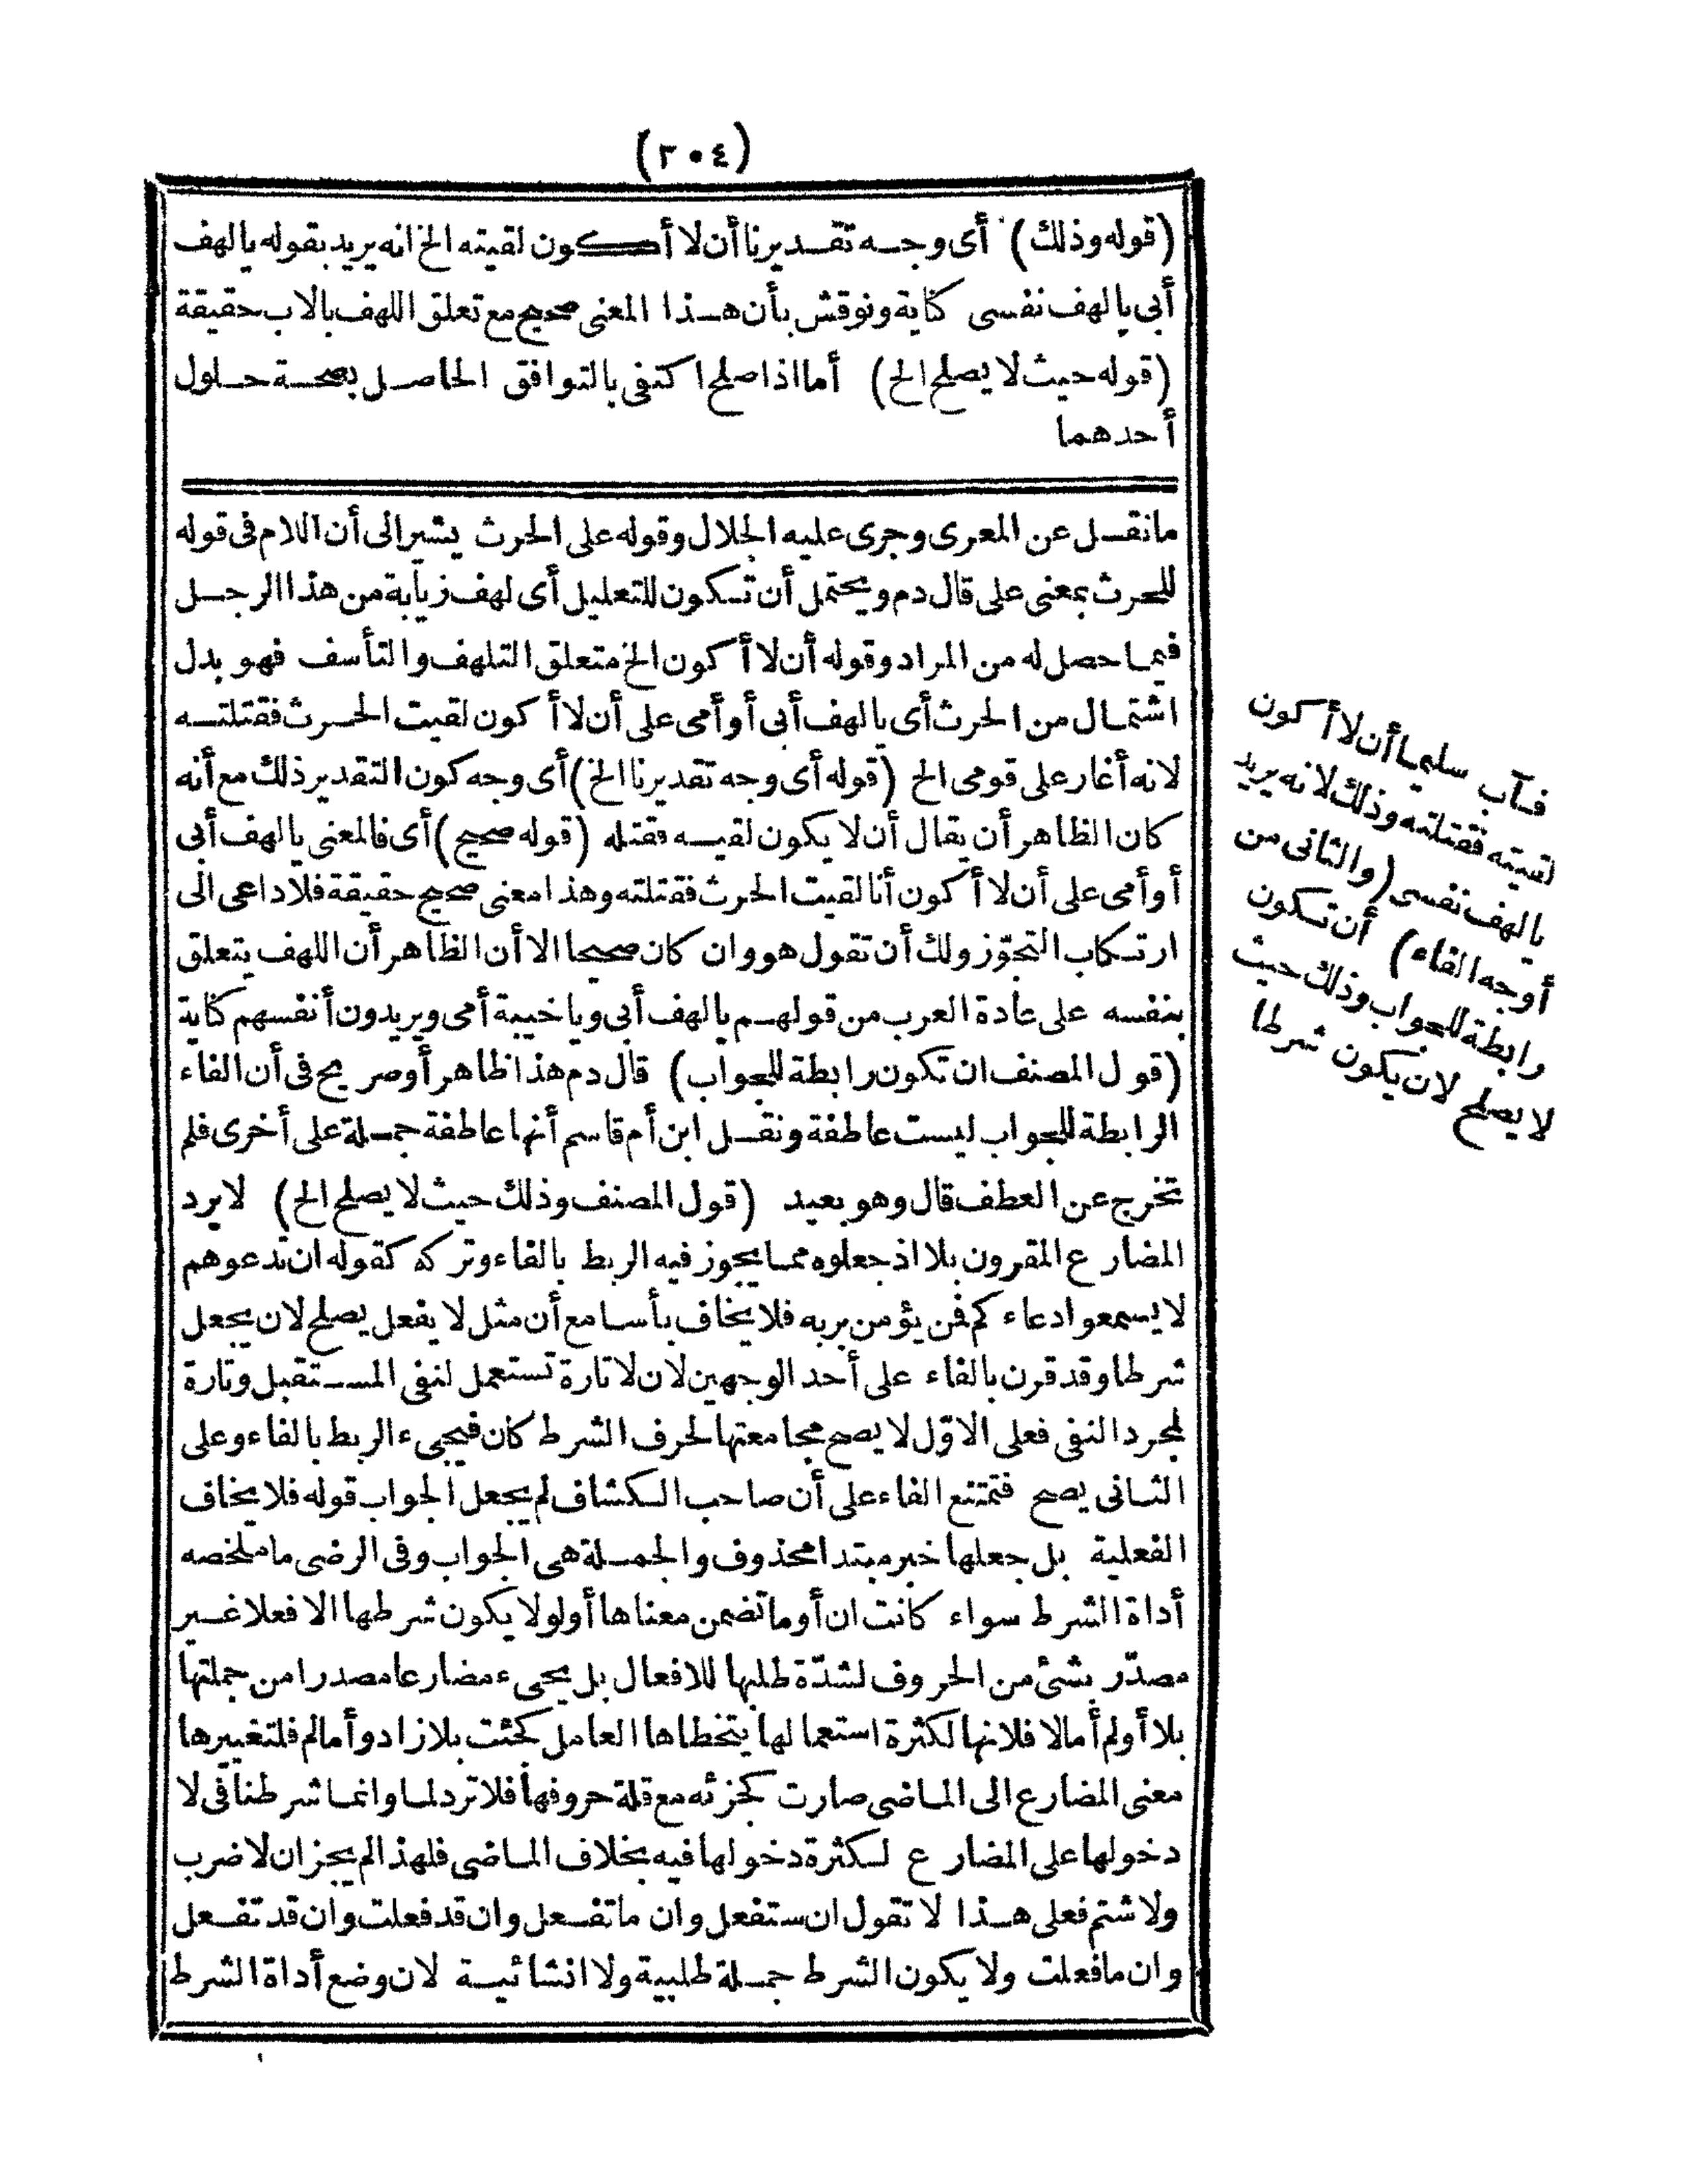 (٣٠٤)
(قوله وذلك) أى وجه تقديرنا أن لا أكون لقيته الخ انه يريد بقوله يا لهف
أبى يا لهف نفسى كناية ونوقش بأن هذا المعنى صحيح مع تعلق اللهف بالاب حقيقة
(قوله حيث لا يصلح الخ) أما اذا صلح اكتفى بالتوافق الحاصل بصحة حلول
أحدهما
ما نقل عن المعرى وجرى عليه الجلال وقوله على الحرث يشير الى أن اللام فى قوله
للحرث بمعنى على قال دم ويحتمل أن تكون للتعليل أى لهف زيابة من هذا الرجل
فيما حصل له من المراد وقوله أن لا أكون الخ متعلق التلهف والتأسف فهو بدل
اشتمال من الحرث أى يا لهف أبى أو أمى على أن لا أكون لقيت الحرث فقتلته
لانه أغار على قومى الخ (قوله أى وجه تقديرنا الخ) أى وجه كون التقدير ذلك مع أنه
كان الظاهر أن يقال أن لا يكون لقيه فقتله (قوله صحيح) أى فالمعنى يا لهف أبى
أو أمى على أن لا أكون أنا لقيت الحرث فقتلته وهذا معنى صحيح حقيقة فلا داعى الى
ارتكاب التجوّز ولك أن تقول هو وان كان صحيحا الا أن الظاهر أن اللهف يتعلق
بنفسه على عادة العرب من قولهم يا لهف أبى ويا خيبة أمى ويريدون أنفسهم كناية
(قول المصنف ان تكون رابطة للجواب) قال دم هذا ظاهر أو صريح فى أن الفاء
الرابطة للجواب ليست عاطفة ونقل ابن أم قاسم أنها عاطفة جملة على أخرى فلم
تخرج عن العطف قال وهو بعيد (قول المصنف وذلك حيث لا يصلح الخ) لا يرد
المضارع المقرون بلا اذ جعلوه مما يجوز فيه الربط بالفاء وتركه كقوله ان تدعوهم
لا يسمعوا دعاءكم فمن يؤمن بربه فلا يخاف بأسا مع أن مثل لا يفعل يصلح لان يجعل
شرطا وقد قرن بالفاء على أحد الوجهين لان لا تارة تستعمل لنفى المستقبل وتارة
لمجرد النفى فعلى الاوّل لا يصح مجامعتها لحرف الشرط كان فيجىء الربط بالفاء وعلى
الثانى يصح فتمتنع الفاء على أن صاحب الكشاف لم يجعل الجواب قوله فلا يخاف
الفعلية بل جعلها خبر مبتدا محذوف والجملة هى الجواب وفى الرضى ما ملخصه
أداة الشرط سواء كانت ان أو ما تضمن معناها أو لو لا يكون شرطها الا فعلا غير
مصدّر بشئ من الحروف لشدّة طلبها للافعال بل يجىء مضارعا مصدرا من جملتها
بلا أو لم أما لا فلانها لكثرة استعمالها يتخطاها العامل كجئت بلا زاد وأما لم فلتغييرها
معنى المضارع الى الماضى صارت كجزئه مع قلة حروفها فلا ترد لما وانما شرطنا فى لا
دخولها على المضارع لكثرة دخولها فيه بخلاف الماضى فلهذا لم يجز ان لا ضرب
ولا شتم فعلى هذا لا تقول ان ستفعل وان ما تفعل وان قد فعلت وان قد تفعل
وان ما فعلت ولا يكون الشرط جملة طلبية ولا انشائية لان وضع أداة الشرط
فآب سليما أن لا أكون
لقيته فقتلته وذلك لانه يريد
يا لهف نفسى (والثانى من
أوجه الفاء) أن تكون
رابطة للجواب وذلك حيث
لا يصلح لان يكون شرطا